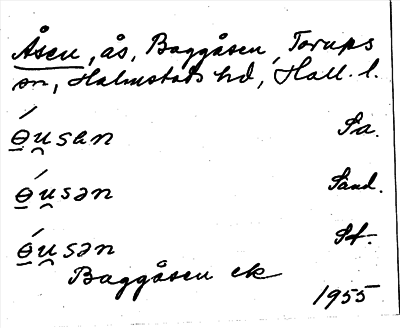 Åsen, ås, Baggåsen, Torups
sn, Halmstads hd, Hall. l.
ɵ́u̯sen Sa.
ɵ́u̯sən Sand.
ɵ́u̯sən St.
Baggåsen ek
1955